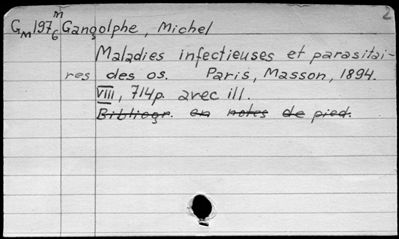 2
GM197m6 Gangolphe, Michel
Maladies infectieuses et parasitai-
res des os. Paris, Masson, 1894.
VIII, 714p. avec ill.
Bibliogr. en notes de pied.